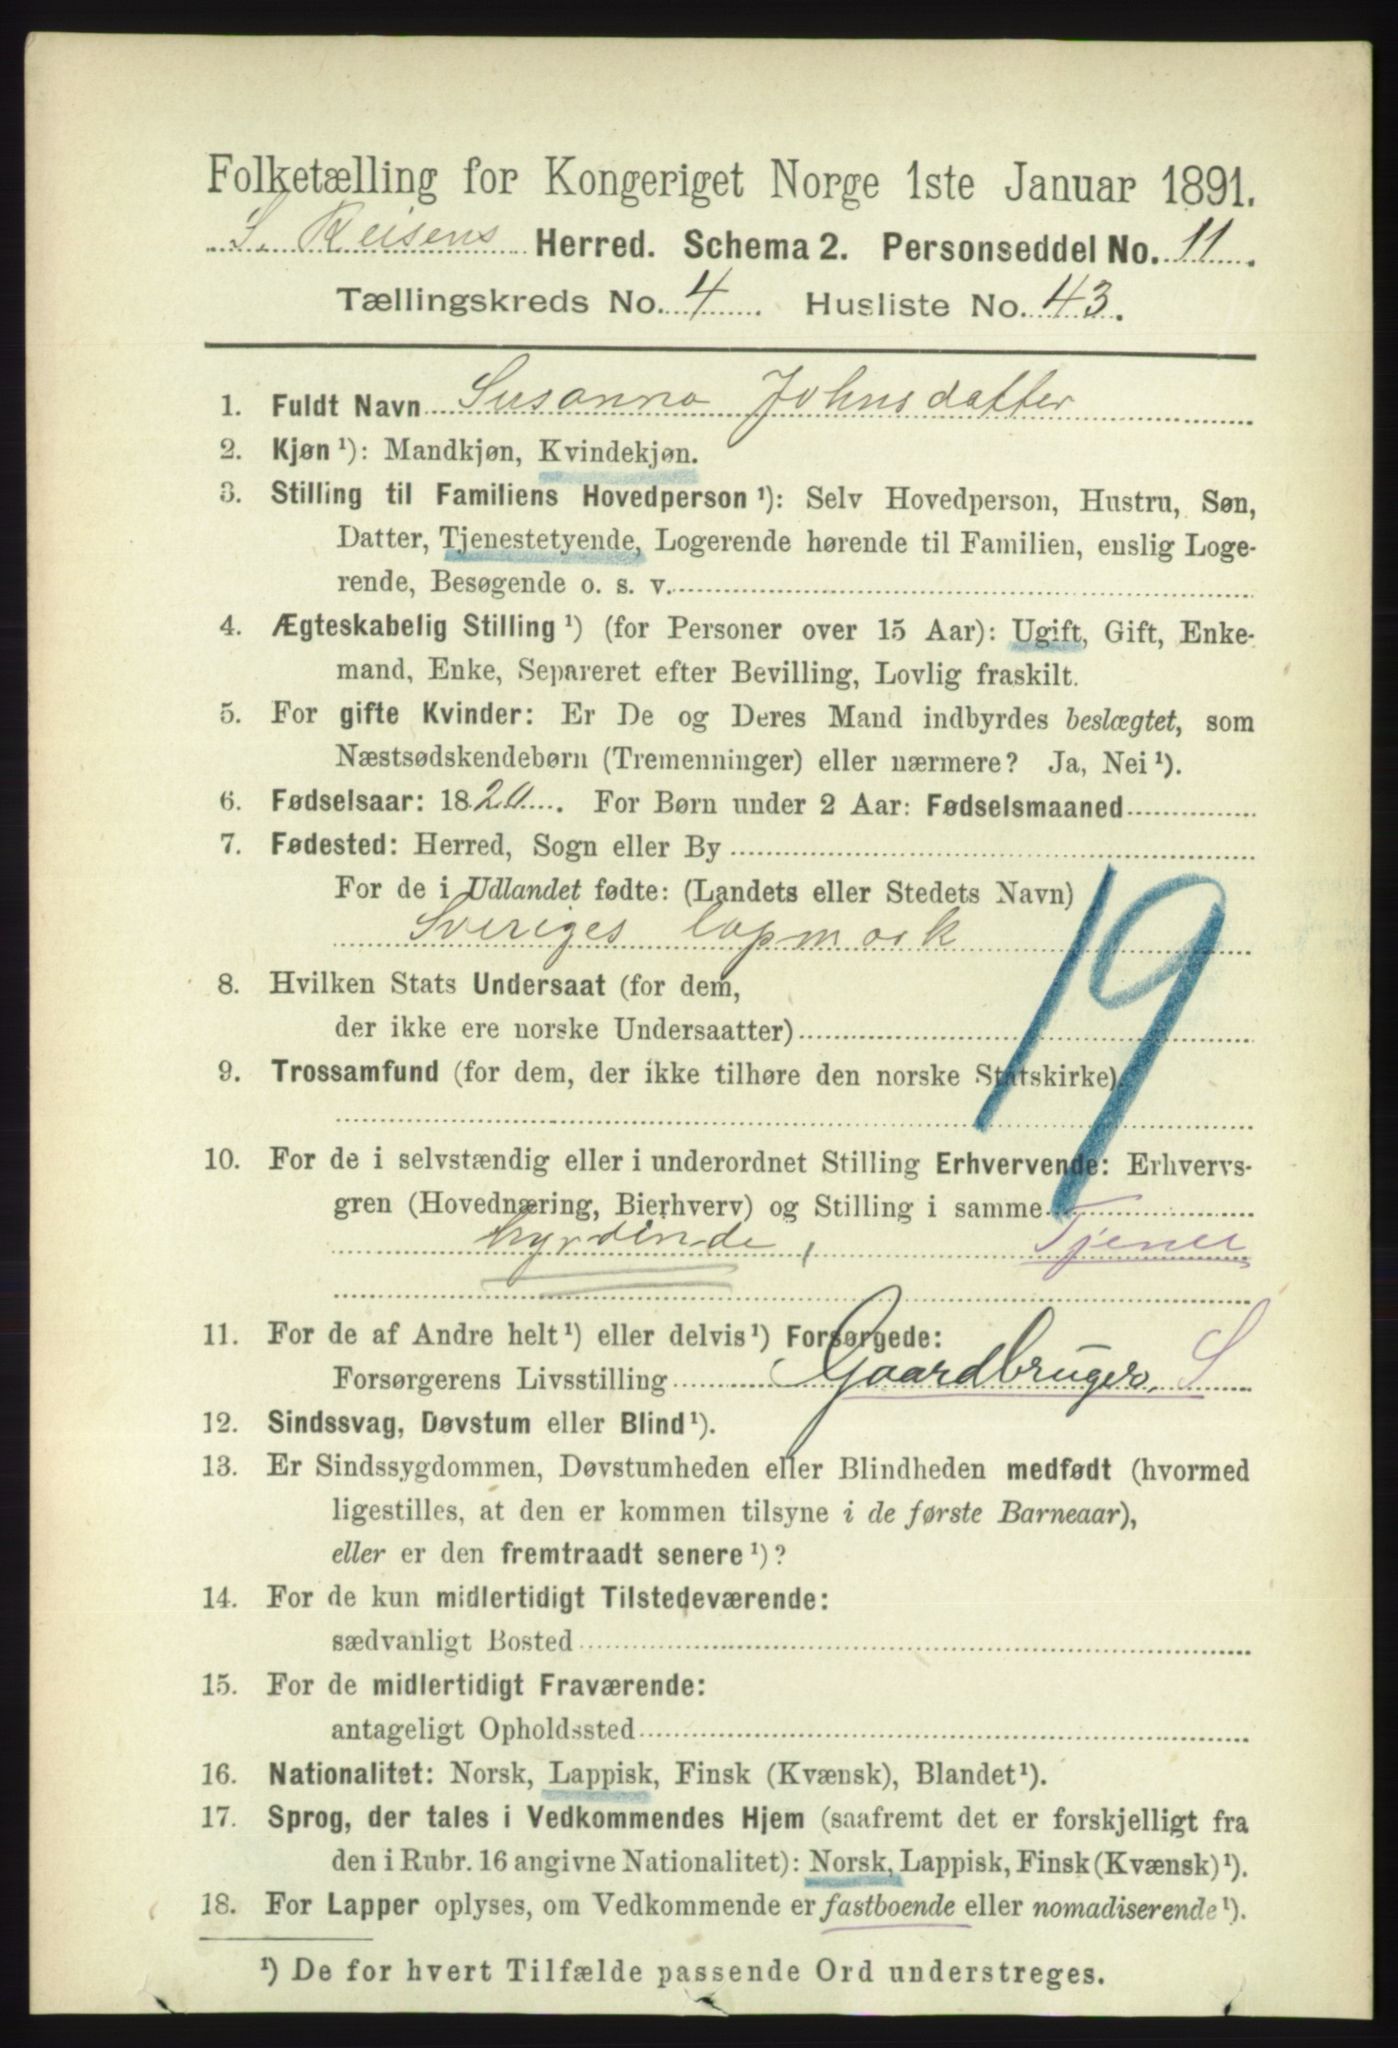 Folketælling for Kongeriget Norge 1ste Januar 1891.
S. Reisens Herred. Schema 2. Personseddel No. 11.
Tællingskreds No. 4. Husliste No. 43.
1. Fuldt Navn Susanna Johnsdatter
2. Kjøn ¹): Mandkjøn, Kvindekjøn.
3. Stilling til Familiens Hovedperson ¹): Selv Hovedperson, Hustru, Søn,
Datter, Tjenestetyende, Logerende hørende til Familien, enslig Loge-
rende, Besøgende o. s. v.
4. Ægteskabelig Stilling ¹) (for Personer over 15 Aar): Ugift, Gift, Enke-
mand, Enke, Separeret efter Bevilling, Lovlig fraskilt.
5. For gifte Kvinder: Er De og Deres Mand indbyrdes beslægtet, som
Næstsødskendebørn (Tremenninger) eller nærmere? Ja, Nei ¹).
6. Fødselsaar: 1820. For Børn under 2 Aar: Fødselsmaaned
7. Fødested: Herred, Sogn eller By
For de i Udlandet fødte: (Landets eller Stedets Navn)
Sveriges lapmark
19
8. Hvilken Stats Undersaat (for dem,
der ikke ere norske Undersaatter)
9. Trossamfund (for dem, der ikke tilhøre den norske Statskirke)
10. For de i selvstændig eller i underordnet Stilling Erhvervende: Erhvervs-
gren (Hovednæring, Bierhverv) og Stilling i samme
hyrdinde, Tjener
11. For de af Andre helt ¹) eller delvis ¹) Forsørgede:
Forsørgerens Livsstilling Gaardbruger, S
12. Sindssvag, Døvstum eller Blind ¹).
13. Er Sindssygdommen, Døvstumheden eller Blindheden medfødt (hvormed
ligestilles, at den er kommen tilsyne i de første Barneaar),
eller er den fremtraadt senere ¹)?
14. For de kun midlertidigt Tilstedeværende:
sædvanligt Bosted
15. For de midlertidigt Fraværende:
antageligt Opholdssted
16. Nationalitet: Norsk, Lappisk, Finsk (Kvænsk), Blandet ¹).
17. Sprog, der tales i Vedkommendes Hjem (saafremt det er forskjelligt fra
den i Rubr. 16 angivne Nationalitet): Norsk, Lappisk, Finsk (Kvænsk) ¹).
18. For Lapper oplyses, om Vedkommende er fastboende eller nomadiserende ¹).
¹) De for hvert Tilfælde passende Ord understreges.